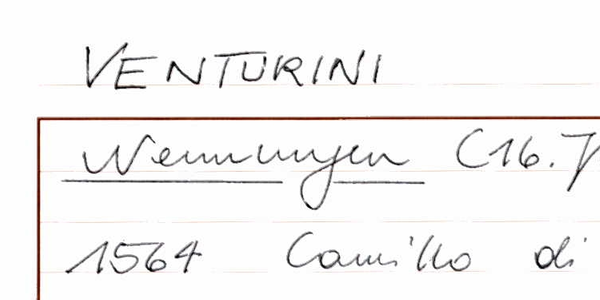 VENTURINI
Nennungen (16. J
1564 Camillo di